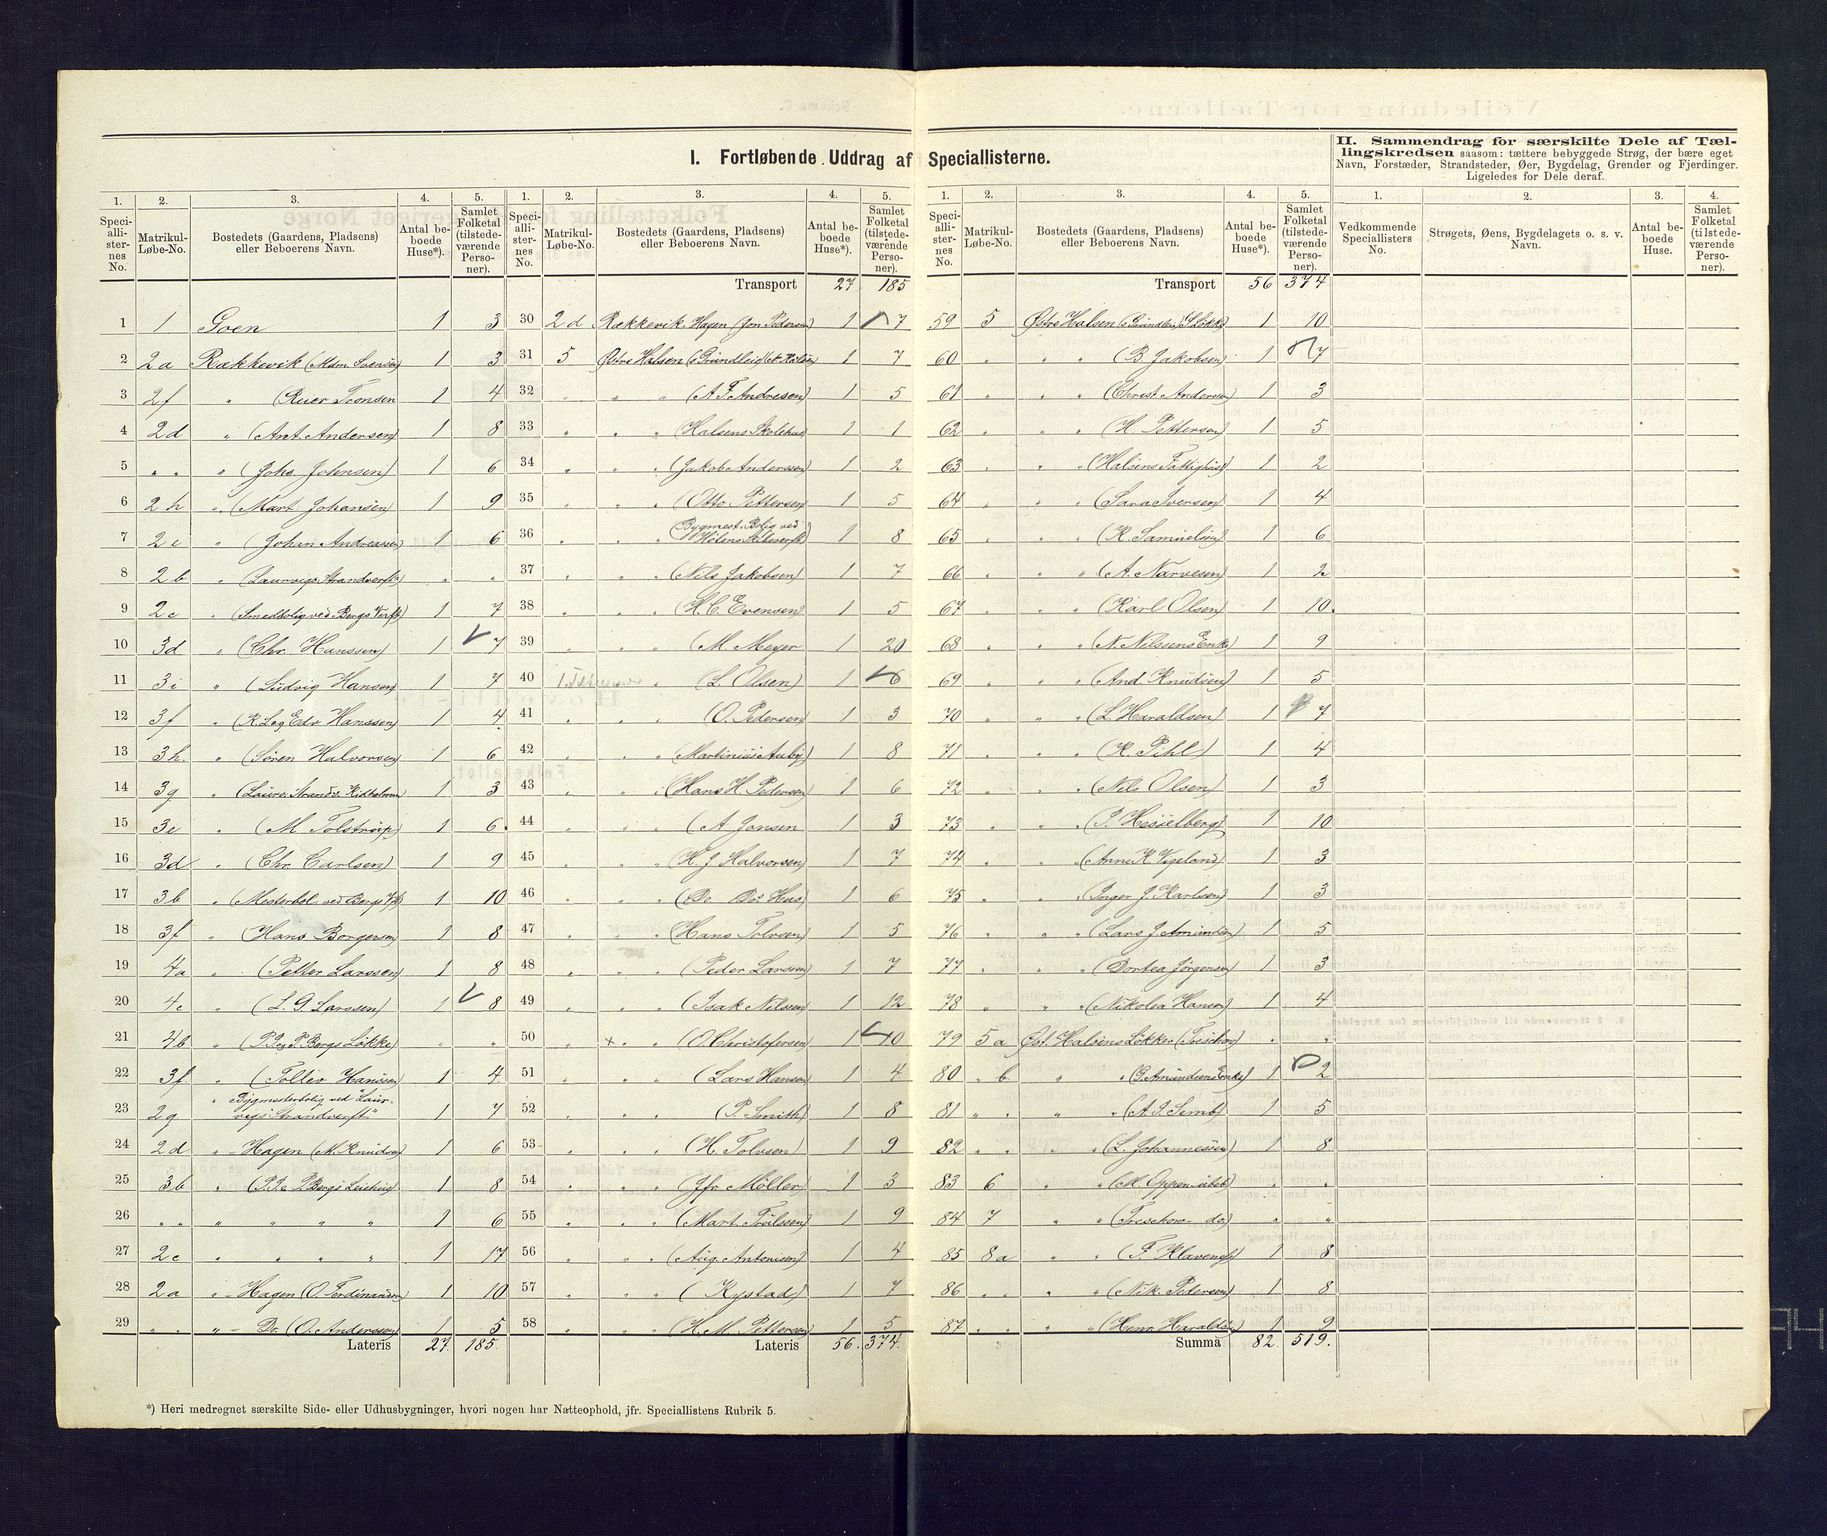 I. Fortløbende Uddrag af Speciallisterne.
II. Sammendrag for særskilte Dele af Tæl-
lingskredsen saasom: tættere bebyggede Strøg, der bære eget
Navn, Forstæder, Strandsteder, Øer, Bygdelag, Grender og Fjerdinger.
Ligeledes for Dele deraf.
1. 2. 3. 4. 5.
Speciallisternes No. Matrikul-Løbe-No. Bostedets (Gaardens, Pladsens) eller Beboerens Navn. Antal beboede Huse*). Samlet Folketal (tilstedeværende Personer).
1 1 Goen 1 3
2 2a Rækkevik (Mdm. Svensen) 1 3
3 2f " (Reier Tronsen 1 4
4 2d " (Ant. Andersen) 1 8
5 " " " (Johs. Johnsen) 1 6
6 2h " (Mart. Johansen) 1 9
7 2i " (Johan Andreassen) 1 6
8 2b " (Laurvigs Strandverft) " "
9 2c " (Smedbolig ved Bergs Verft) 1 7
10 3d " (Chr. Hanssen) 1 7
11 3i " (Ludvig Hansen) 1 7
12 3f " (K. Leg Edv. Hanssen) 1 4
13 3h " (Søren Halvorsen) 1 6
14 3g " (Laurv. Strandv. 1 3
15 3e " (M. Tolstrup) 1 6
16 3d " (Chr. Carlsen) 1 9
17 3b " (Mesterbol. ved Bergs Vft) 1 10
18 3f " (Hans Borgersen) 1 8
19 4a " (Petter Larssen) 1 8
20 4c " (L. G. Larssen) 1 8
21 4b " (P. Bergs Løkke) " "
22 3f " (Tollev Hanssen) 1 4
23 2g " Bygmesterbolig ved Laur-
vigs Strandverft" 1 7
24 2d " - Hagen (M. Knudsen) 1 6
25 3b " (P. Bergs Leiehus) 1 8
26 " " " " " " 1 6
27 2c " " " " 1 17
28 2a " - Hagen (O. Ferdinandsen) 1 10
29 " " " - Do. (O. Anderssen) 1 5
Lateris 27. 185.
1. 2. 3. 4. 5.
Speciallisternes No. Matrikul-Løbe-No. Bostedets (Gaardens, Pladsens) eller Beboerens Navn. Antal beboede Huse*). Samlet Folketal (tilstedeværende Personer).
Transport 27 185
30 2d Rækkevik. Hagen (Jon Pedersen) 1 7
31 5 Østre Halsen (s Grundleie) 1 7
32 " " " (A. F. Andresen) 1 5
33 " " " (Halsens Skolehus) 1 1
34 " " " (Jakob Anderssen) 1 2
35 " " " (Otto Pettersen 1 5
36 " (Bygmest. Bolig ved
Hølens Skibsverft) 1 8
37 " " " (Nils Jakobsen) 1 7
38 " " " (H. C. Evensen 1 5
39 " " " (M. Meyer 1 20
40 " (L. Olsen) 1 6
41 " " " (O. Pedersen) 1 3
42 " " " (Martinius Auby) 1 8
43 " " " (Hans H. Pedersen) 1 6
44 " " " (A. Jonsen 1 3
45 " " " (H. J. Halvorsen) 1 7
46 " " " (Do. Do's Hus) 1 6
47 " " " (Hans Tolvsen) 1 5
48 " " " (Peder Larssen) 1 7
49 " " " (Isak Nilssen) 1 12
50 " × " (O. Christofersen) 1 10
51 " " " (Lars Hansen) 1 4
52 " " " (P. Smith) 1 8
53 " " " (H. Tolvsen) 1 9
54 " " " (Jfr. Møller) 1 3
55 " " " (Mart. Trulssen) 1 9
56 " " " (Aug. Antonisen) 1 4
57 " " " (Rystad) 1 7
58 " " " (H. M. Pettersen) 1 5
Lateris 56. 374.
1. 2. 3. 4. 5.
Speciallisternes No. Matrikul-Løbe-No. Bostedets (Gaardens, Pladsens) eller Beboerens Navn. Antal beboede Huse*). Samlet Folketal (tilstedeværende Personer).
Transport 56 374
59 5 Østre Halsen (s Grundleie) S. Løkke 1 10
60 " " " (B. Jakobsen) 1 7
61 " " " (Christ. Andersen) 1 3
62 " " " (H. Pettersen) 1 5
63 " " " (Halsens Fattighus) 1 2
64 " " " (Sara Iversen) 1 4
65 " " " (K. Samuelsen) 1 6
66 " " " (A. Narvesen) 1 2
67 " " " (Karl Olsen) 1 10.
68 " " " (N. Nilssens Enke) 1 9
69 " " " (And. Knudsen) 1 5
70 " " " (L. Haraldsen) 1 7
71 " " " (K. Pihl) 1 4
72 " " " (Nils Olsen) 1 3
73 " " " (P. Hesselberg) 1 10
74 " " " (Anne K. Vigeland) 1 3
75 " " " (Inger J. Karlsen) 1 3
76 " " " (Lars J. Amundsen) 1 5
77 " " " (Dortea Jørgensen) 1 3
78 " " " (Nikolea Hansen) 1 4
79 5a Øst. Halsens Løkker (Treschow) " "
80 " b " " (G. Amundsens Enke) 1 2
81 " " " " (A. J. Semb) 1 5
82 " " " " (L. Johannessen) 1 8
83 6 " " (M. Oppen - ubeb) " "
84 7 " " (Treschow - do) " "
85 8a " " (F. Klaveness) 1 8
86 " " " " (Nik. Pedersen) 1 8
87 " " " " (Henr. Haraldsen) 1 9
Summa 82. 519.
1. 2. 3. 4.
Vedkommende Speciallisters No. Strøgets, Øens, Bygdelagets o. s. v. Navn. Antal beboede Huse. Samlet Folketal (tilstedeværende Personer).
*) Heri medregnet særskilte Side- eller Udhusbygninger, hvori nogen har Natteophold, jfr. Speciallistens Rubrik 5.